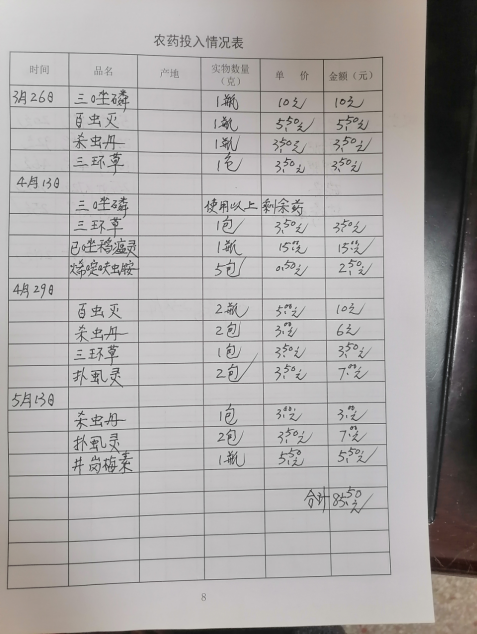 农药投入情况表
时间 品名 产地 实物数量（克） 单 价 金额（元）
3月26日 三唑磷 1瓶 10元 10元
百虫灭 1瓶 5.50元 5.50元
杀虫丹 1瓶 3.50元 3.50元
三环草 1包 3.50元 3.50元
4月13日
三唑磷 使用以上剩余药
三环草 1包 3.50元 3.50元
已唑稻瘟灵 1瓶 15.00元 15.00元
烯啶呋虫胺 5包 0.50元 2.50元
4月29日
百虫灭 2瓶 5.00元 10元
杀虫丹 2包 3.00元 6元
三环草 1包 3.50元 3.50元
扑虱灵 2包 3.50元 7.00元
5月13日
杀虫丹 1包 3.00元 3.00元
扑虱灵 2包 3.50元 7.00元
井岗梅素 1瓶 5.50元 5.50元
合计 85.50元
8